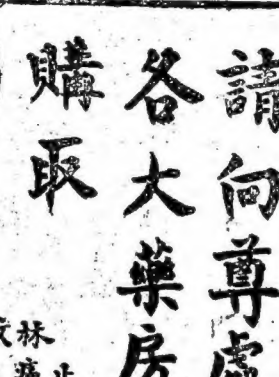 請向尊處
各大藥房
購取
林
痛止